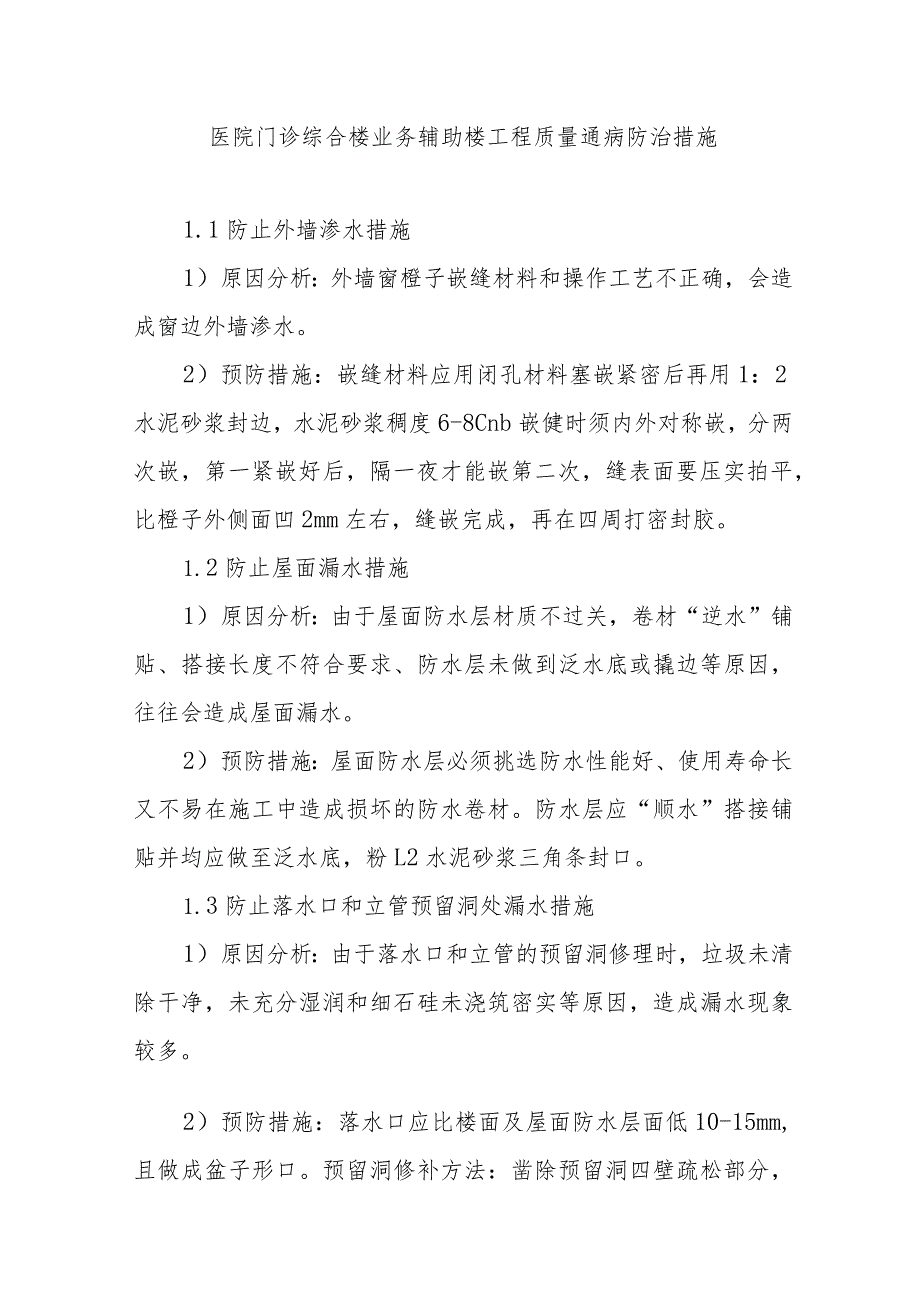 医院门诊综合楼业务辅助楼工程质量通病防治措施
1.1防止外墙渗水措施
1）原因分析：外墙窗橙子嵌缝材料和操作工艺不正确，会造
成窗边外墙渗水。
2）预防措施：嵌缝材料应用闭孔材料塞嵌紧密后再用1：2
水泥砂浆封边，水泥砂浆稠度6-8Cnb嵌健时须内外对称嵌，分两
次嵌，第一紧嵌好后，隔一夜才能嵌第二次，缝表面要压实拍平，
比橙子外侧面凹2mm左右，缝嵌完成，再在四周打密封胶。
1.2防止屋面漏水措施
1）原因分析：由于屋面防水层材质不过关，卷材“逆水”铺
贴、搭接长度不符合要求、防水层未做到泛水底或撬边等原因，
往往会造成屋面漏水。
2）预防措施：屋面防水层必须挑选防水性能好、使用寿命长
又不易在施工中造成损坏的防水卷材。防水层应“顺水”搭接铺
贴并均应做至泛水底，粉L2水泥砂浆三角条封口。
1.3防止落水口和立管预留洞处漏水措施
1）原因分析：由于落水口和立管的预留洞修理时，垃圾未清
除干净，未充分湿润和细石硅未浇筑密实等原因，造成漏水现象
较多。
2）预防措施：落水口应比楼面及屋面防水层面低10-15mm,
且做成盆子形口。预留洞修补方法：凿除预留洞四壁疏松部分，